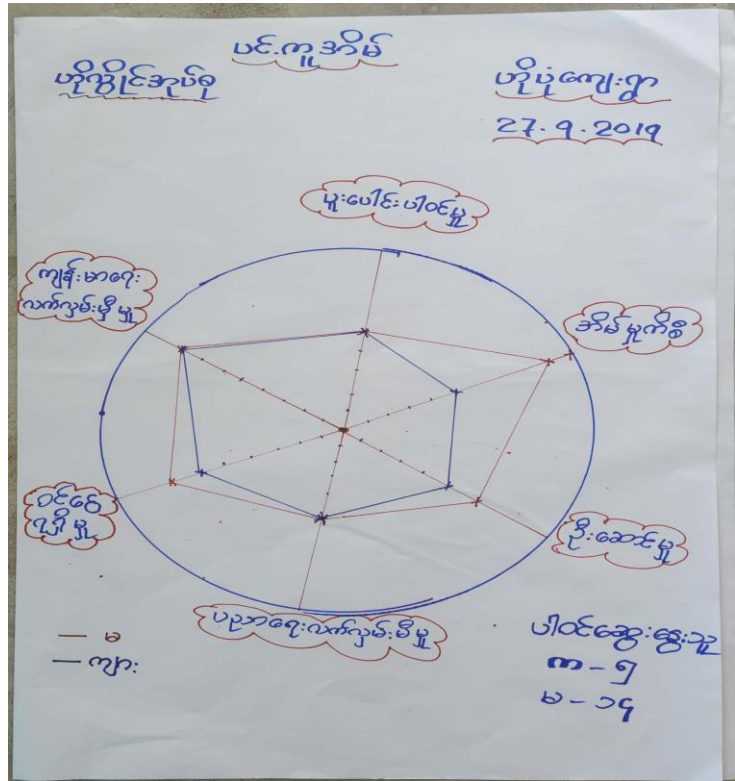 ပင့်ကူအိမ်
ဟိုလှိုင်အုပ်စု
ဟိုပုံကျေးရွာ
27.9.2019
ပူးပေါင်းပါဝင်မှု
ကျန်းမာရေး
လက်လှမ်းမှီမှု
အိမ်မှုကိစ္စ
ဝင်ငွေ
ရရှိမှု
ဦးဆောင်မှု
ပညာရေးလက်လှမ်းမီမှု
— မ
— ကျား
ပါဝင်ဆွေးနွေးသူ
ကျား - ၅
မ - ၁၄